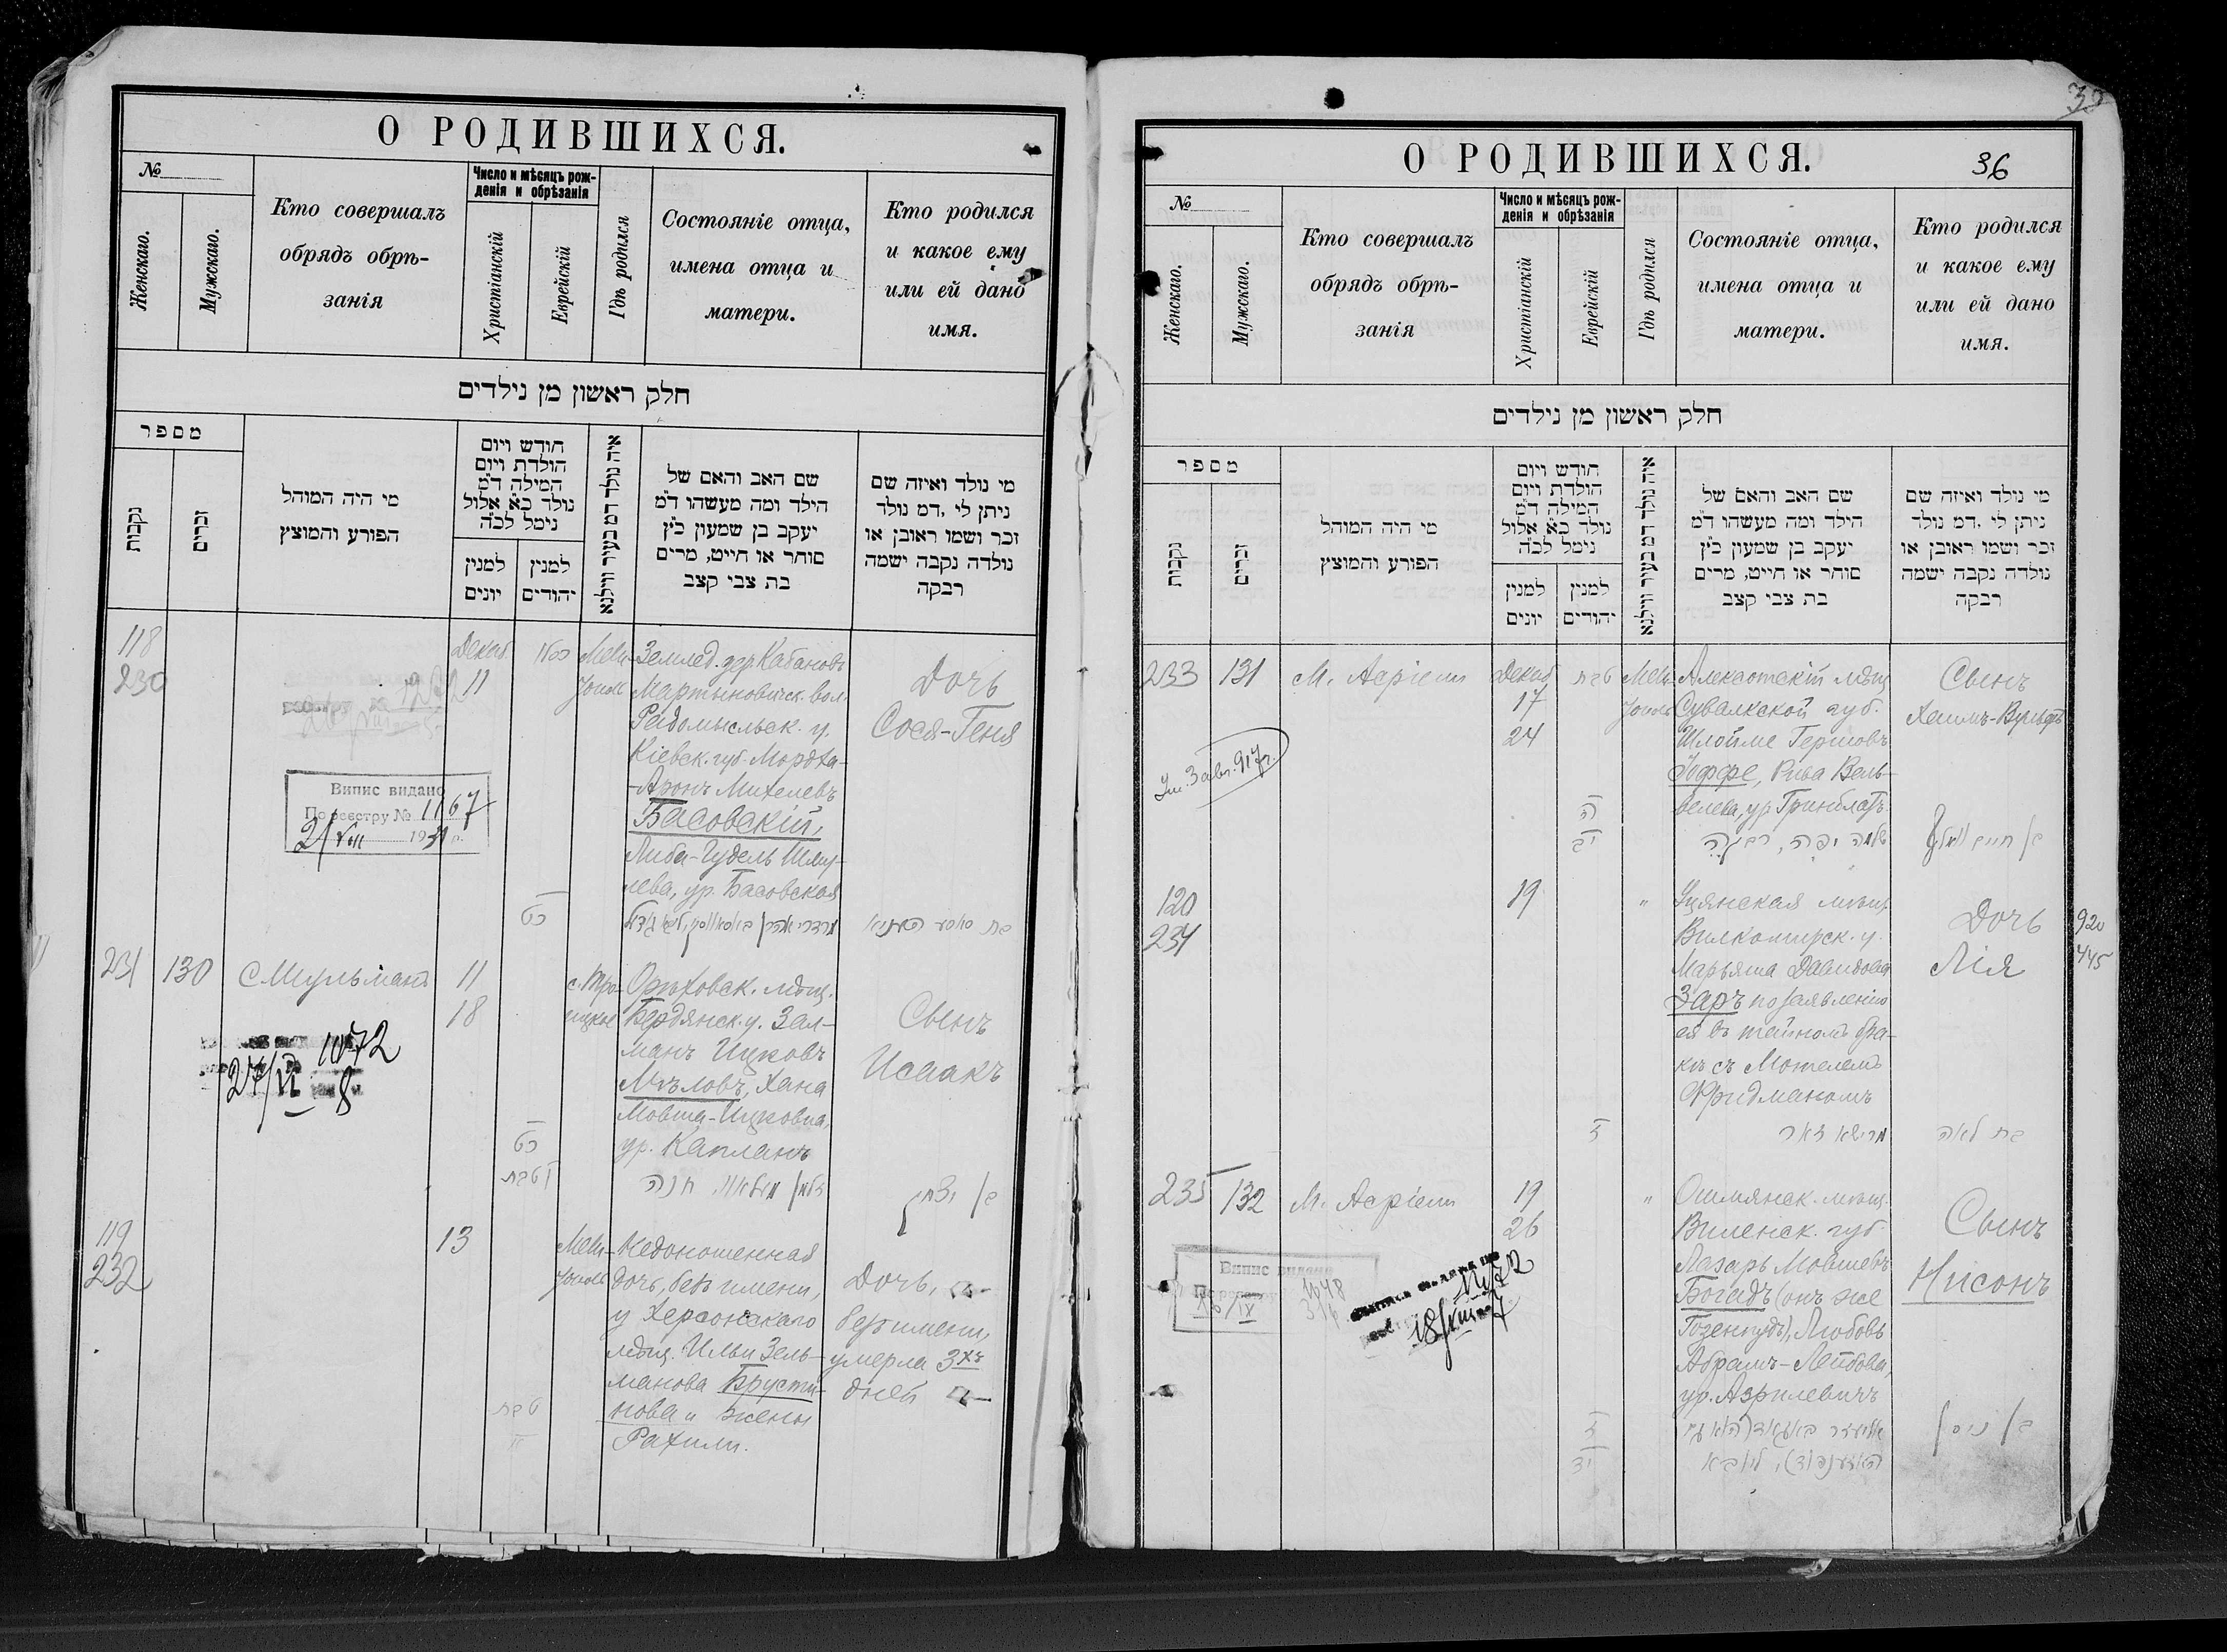 О РОДИВШИХСЯ.
№
Женскаго.
Мужскаго.
Кто совершалъ
обрядъ обрѣ-
занія
Число и мѣсяцъ рож-
денія и обрѣзанія
Христіанскій
Еврейскій
Гдѣ родился
Состояніе отца,
имена отца и
матери.
Кто родился
и какое ему
или ей дано
имя.
חלק ראשון מן נילדים
מספר
נקבות
זכרים
מי היה המוהל
הפורע והמוצץ
חודש ויום
הולדת ויום
המילה ד״מ
נולד כ״א אלול
נימל לכ״ה
למנין
יונים
למנין
יהודים
איה נולד דמ בעיר ווילנא
שם האב והאם של
הילד ומה מעשהו ד״מ
יעקב בן שמעון כ״ץ
סוחר או חייט, מרים
בת צבי קצב
מי נולד ואיזה שם
ניתן לי ,דמ נולד
זכר ושמו ראובן או
נולדה נקבה ישמה
רבקה
118
230
Декаб.
11
Мели-
тополь
Землед. дер. Кабановъ
Мартыновичск. вол.
Радомысльск. у.
Кіевск. губ. Мордха-
-Аронъ Михелевъ
Басовскій,
Либа-Гудель Шму-
лева, ур. Басовская
Дочь
Сося-Геня
Випис видано
По реєстру № 1167
21/VIII 1931 р.
כט
231
130
С. Шульманъ
11
18
с. Тро-
ицкое
Орѣховск. мѣщ.
Бердянск. у. Зал-
манъ Ицковъ
Мѣловъ, Хана
Мовша-Ицковна,
ур. Капланъ
Сынъ
Исаакъ
1072
27/VI 8
כט
טבת
חנה
בן יצחק
119
232
13
Мели-
тополь
Недоношенная
дочь, безъ имени,
у Херсонскаго
мѣщ. Ильи Зель-
манова Брусти-
нова и жены
Рахили.
Дочь,
безъ имени,
умерла 3хъ
дней
טבת
О РОДИВШИХСЯ.
36
№
Женскаго.
Мужскаго.
Кто совершалъ
обрядъ обрѣ-
занія
Число и мѣсяцъ рож-
денія и обрѣзанія
Христіанскій
Еврейскій
Гдѣ родился
Состояніе отца,
имена отца и
матери.
Кто родился
и какое ему
или ей дано
имя.
חלק ראשון מן נילדים
מספר
נקבות
זכרים
מי היה המוהל
הפורע והמוצץ
חודש ויום
הולדת ויום
המילה ד״מ
נולד כ״א אלול
נימל לכ״ה
למנין
יונים
למנין
יהודים
איה נולד דמ בעיר ווילנא
שם האב והאם של
הילד ומה מעשהו ד״מ
יעקב בן שמעון כ״ץ
סוחר או חייט, מרים
בת צבי קצב
מי נולד ואיזה שם
ניתן לי ,דמ נולד
זכר ושמו ראובן או
נולדה נקבה ישמה
רבקה
233
131
М. Асріели
Декаб
17
24
טבת
Мели-
тополь
Алексотскій мѣщ
Сувалкской губ.
Шлойме Гершовъ
Іоффе, Рива Вель-
велева, ур Гринблатъ
שלמה יפה,
Сынъ
Хаимъ-Вульфъ
Ум. 3 авг. 917 г.
ה
יב
120
234
19
"
Уцянская мѣщ.
Вилкомирск. у.
Марьяша Давидовна
Заръ по заявленію
ея въ тайномъ бра-
кѣ съ Мотелемъ
Фридманомъ
Дочь
Лія
920
445
ז
זאר
בת לאה
235
132
М. Асріели
19
26
"
Ошмянск. мѣщ.
Виленск. губ.
Лазарь Мовшевъ
Богадъ (онъ же
Гозенпудъ), Любовь
Абрамъ-Лейбова,
ур. Азрилевичъ
Сынъ
Нисонъ
Випис видано
18/VIII
ז
יד
בן ניסן